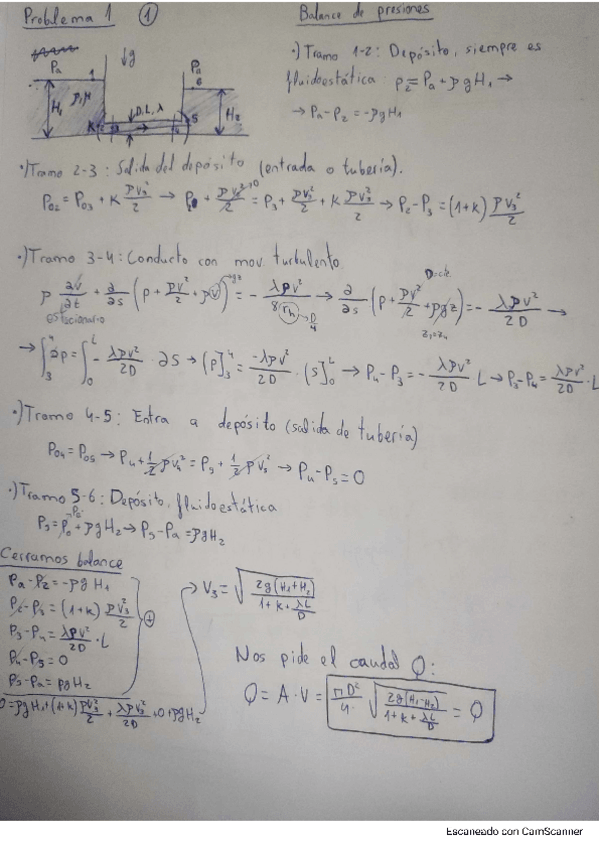 Problema 1 ①
Balance de presiones
Pa 1 ↓g Pa 6
H₁ ρ,μ D,L,λ H₂
K 5
·) Tramo 1-2: Depósito, siempre es
fluidoestática p₂=Pa+ρgH₁ →
→ Pa-P₂=-ρgH₁
·) Tramo 2-3: Salida del depósito (entrada a tubería).
P₀₂=P₀₃+K ρV₃²/2 → P₂ + ρV₂²/2→0 = P₃+ ρV₃²/2 + K ρV₃²/2 → P₂-P₃=(1+K) ρV₃²/2
·) Tramo 3-4: Conducto con mov. turbulento
D=cte
ρ ∂V/∂t + ∂/∂s (P + ρV²/2 + ρU)→gz = - λρV²/8rh → ∂/∂s (P+ ρV²/2 +ρgz) = - λρV²/2D →
Estacionario D/4 z₃=z₄
→ ∫₃⁴∂p = ∫₀ᴸ - λρV²/2D · ∂S → (P)₃⁴ = -λρV²/2D · (S)₀ᴸ → P₄-P₃ = - λρV²/2D L → P₃-P₄ = λρV²/2D · L
·) Tramo 4-5: Entra a depósito (salida de tubería)
P₀₄=P₀₅ → P₄+½ρV₄² = P₅+½ρV₅² → P₄-P₅=0
·) Tramo 5-6: Depósito, fluidoestática
P₅=P₆→Pa+ρgH₂ → P₅-Pa=ρgH₂
Cerramos balance
Pa-P₂=-ρgH₁
P₂-P₃=(1+K) ρV₃²/2
P₃-P₄= λρV²/2D · L
P₄-P₅=0
P₅-Pa=ρgH₂
⊕
0=ρgH₁+(1+K) ρV₃²/2 + λρV₃²/2D +0+ρgH₂
→ V₃= √(2g(H₁+H₂)/(1+K+λL/D))
Nos pide el caudal Q:
Q = A·V = πD²/4 √(2g(H₁-H₂)/(1+K+λL/D)) = Q
Escaneado con CamScanner